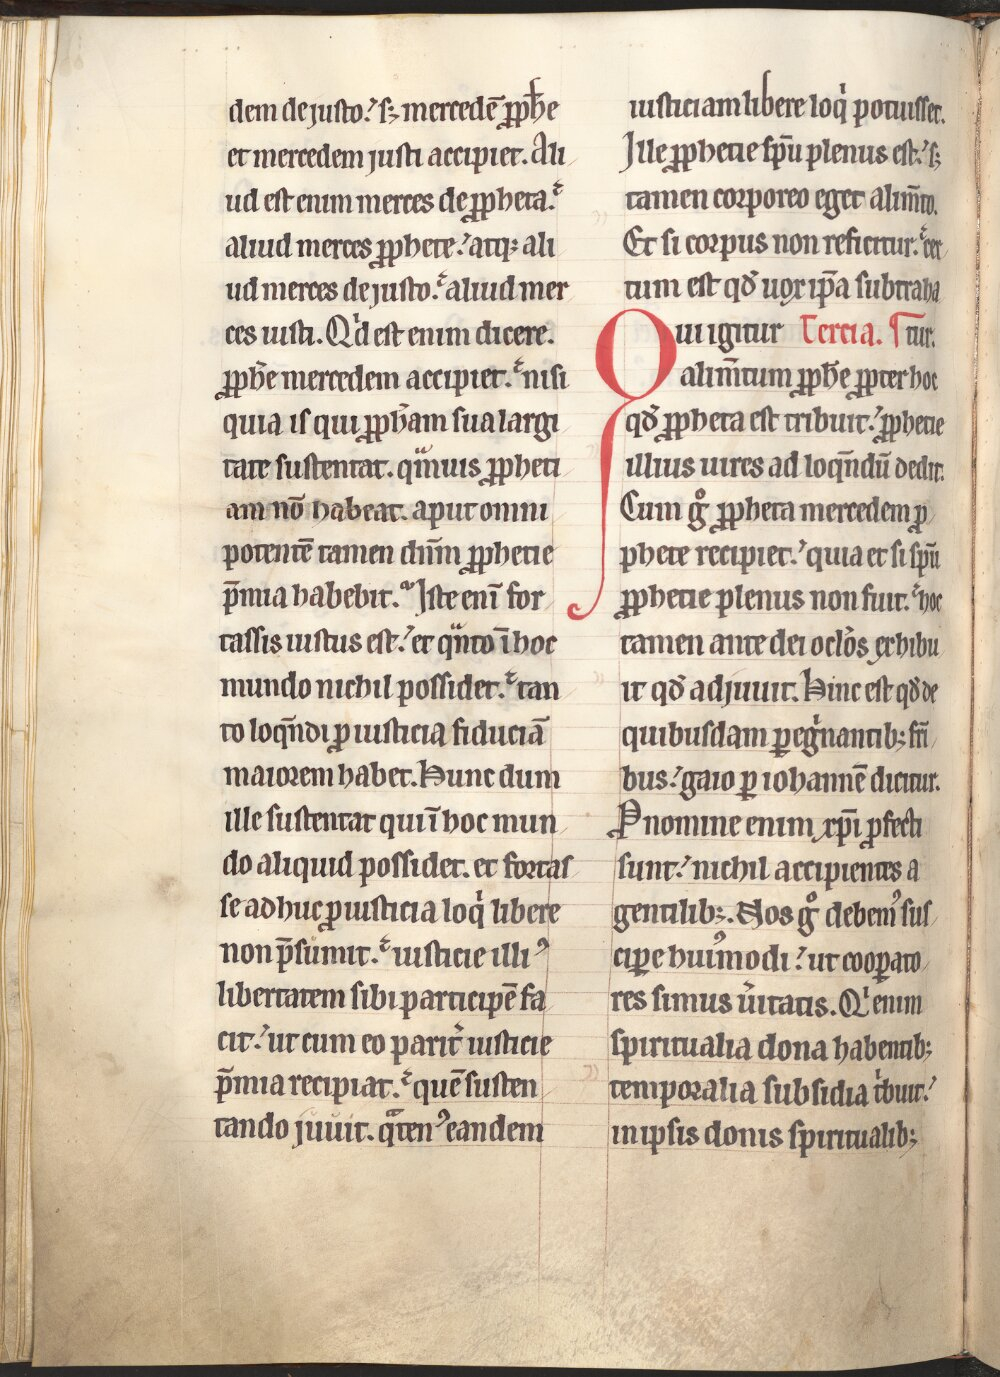 dem de justo.' s; mercedē ꝓph̄e
et mercedem justi accipiet. Ali
ud est enim merces de ꝓpheta.
aliud merces ꝓphete.' atq; ali
ud merces de justo. aliud mer
ces iusti. Qͥd est enim dicere.
ꝓph̄e mercedem accipiet. nisi
quia is qui ꝓph̄am sua largi
tate sustentat. qͣmuis ꝓpheti
am nō habeat. aput omni
potentē tamen dn̄m ꝓphetie
p̄mia habebit. Iste enī for
tassis iustus est.' et qͣnto ī hoc
mundo nichil possidet. tan
to loqn̄di ꝓ iusticia fiduciā
maiorem habet. Hunc dum
ille sustentat qui ī hoc mun
do aliquid possidet. et fortas
se adhuc ꝓ iusticia loqͥ libere
non p̄sumit. iusticie illiꝰ
libertatem sibi participē fa
cit.' ut cum eo parit̄ iusticie
p̄mia recipiat. quē susten
tando juuit. qͣtenꝰ eandem
iusticiam libere loqͥ potuisset.
Ille ꝓphetie sp̄u plenus est.' s;
tamen corporeo eget alim̄to.
Et si corpus non reficitur. cer
tum est qđ uox ip̄a subtraha
Qui igitur Tercia. ¶ tur.
alim̄tum ꝓph̄e ꝓpter hoc
qđ ꝓpheta est tribuit.' ꝓphetie
illius uires ad loqn̄dū dedit.
Cum gͦ ꝓpheta mercedem ꝓ
phete recipiet.' quia et si sp̄u
ꝓphetie plenus non fuit. hoc
tamen ante dei oclo̓s exhibu
it qđ adjuuit. Hinc est qđ de
quibusdam ꝑegͥnantib; fr̄i
bus.' gaio ꝑ iohannē dicitur.
Pro nomine enim xp̄i ꝓfecti
sunt.' nichil accipientes a
gentilib;. Nos gͦ debemꝰ sus
cipe huiꝰmodi.' ut cooꝑato
res simus uͥitatis. Qͥ enim
spiritualia dona habentib;
temporalia subsidia tͥbuit.'
in ipsis donis spiritualib;